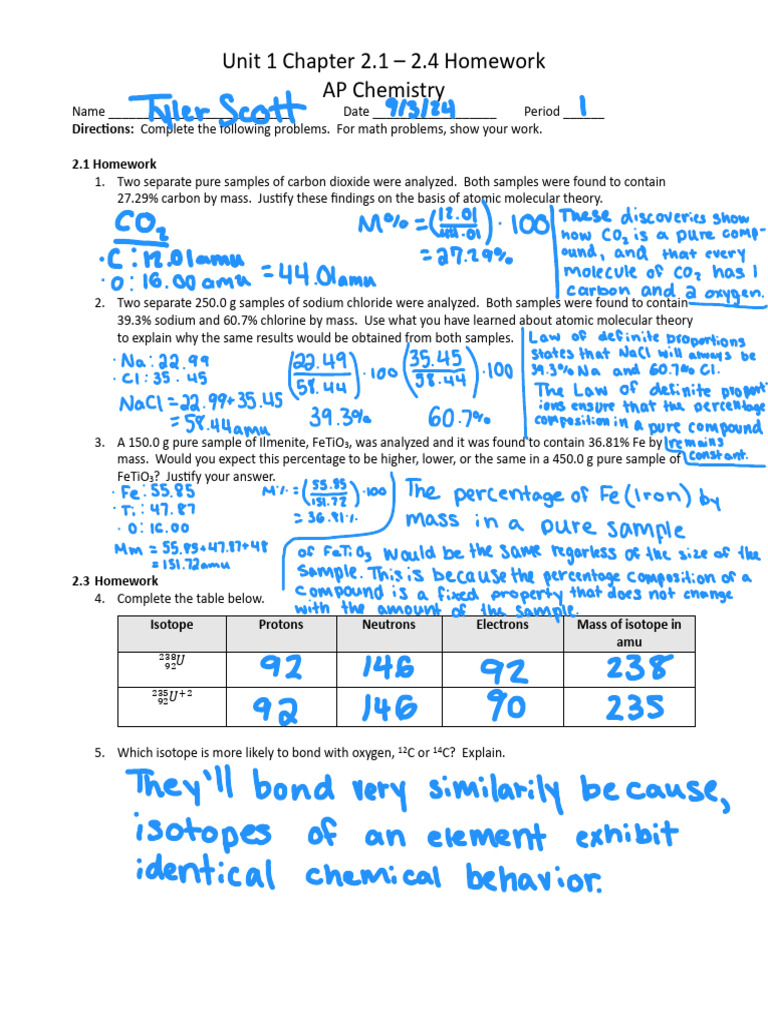 Unit 1 Chapter 2.1 – 2.4 Homework
AP Chemistry
Name Tyler Scott Date 9/3/24 Period 1
Directions: Complete the following problems. For math problems, show your work.
2.1 Homework
1. Two separate pure samples of carbon dioxide were analyzed. Both samples were found to contain
27.29% carbon by mass. Justify these findings on the basis of atomic molecular theory.
CO₂
· C : 12.01amu
· O : 16.00 amu
= 44.01amu
M% = (12.01/44.01) · 100
= 27.29%
These discoveries show
how CO₂ is a pure comp-
ound, and that every
molecule of CO₂ has 1
carbon and 2 oxygen.
2. Two separate 250.0 g samples of sodium chloride were analyzed. Both samples were found to contain
39.3% sodium and 60.7% chlorine by mass. Use what you have learned about atomic molecular theory
to explain why the same results would be obtained from both samples.
· Na : 22.99
· Cl : 35.45
NaCl = 22.99+35.45
= 58.44amu
(22.99/58.44) · 100
39.3%
(35.45/58.44) · 100
60.7%
Law of definite proportions
states that NaCl will always be
39.3% Na and 60.7% Cl.
The Law of definite proport-
ions ensure that the percentage
composition in a pure compound
remains
constant.
3. A 150.0 g pure sample of Ilmenite, FeTiO₃, was analyzed and it was found to contain 36.81% Fe by
mass. Would you expect this percentage to be higher, lower, or the same in a 450.0 g pure sample of
FeTiO₃? Justify your answer.
· Fe : 55.85
· Ti : 47.87
· O : 16.00
Mm = 55.85+47.87+48
= 151.72amu
M% = (55.85/151.72) · 100
= 36.81%
The percentage of Fe (Iron) by
mass in a pure sample
of FeTiO₃ would be the same regarless of the size of the
sample. This is because the percentage composition of a
compound is a fixed property that does not change
with the amount of the sample.
2.3 Homework
4. Complete the table below.
Isotope Protons Neutrons Electrons Mass of isotope in
amu
²³⁸₉₂U 92 146 92 238
²³⁵₉₂U⁺² 92 146 90 235
5. Which isotope is more likely to bond with oxygen, ¹²C or ¹⁴C? Explain.
They'll bond very similarily because,
isotopes of an element exhibit
identical chemical behavior.